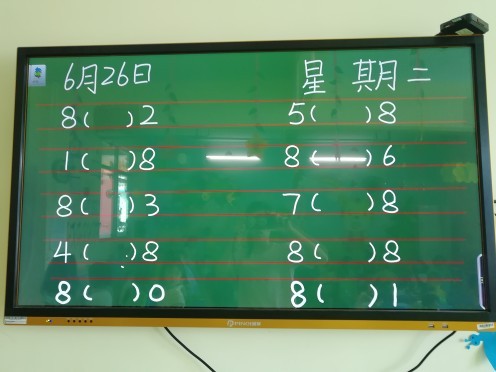 6月26日 星期二
8( )2 5( )8
1( )8 8( )6
8( )3 7( )8
4( )8 8( )8
8( )0 8( )1